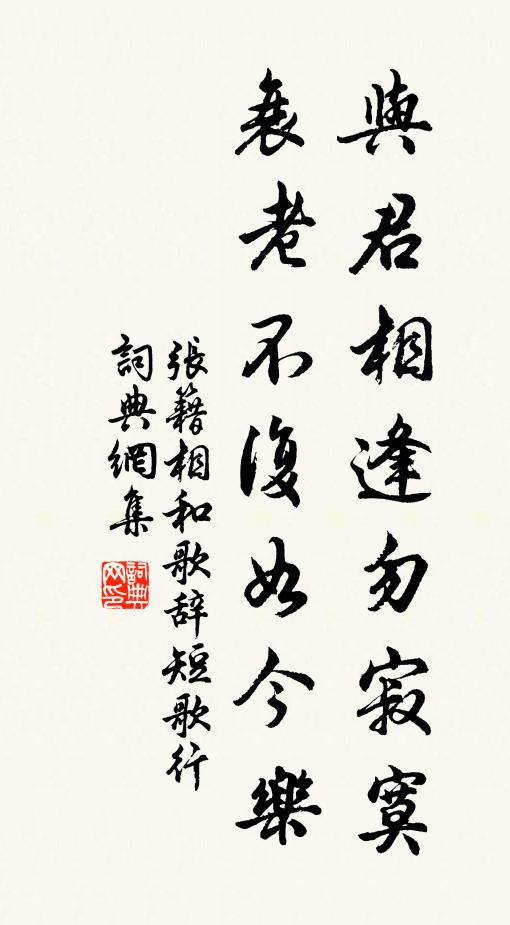 與君相逢勿寂寞
衰老不復如今樂
張籍相和歌辞短歌行
詞典網集
詞典网印